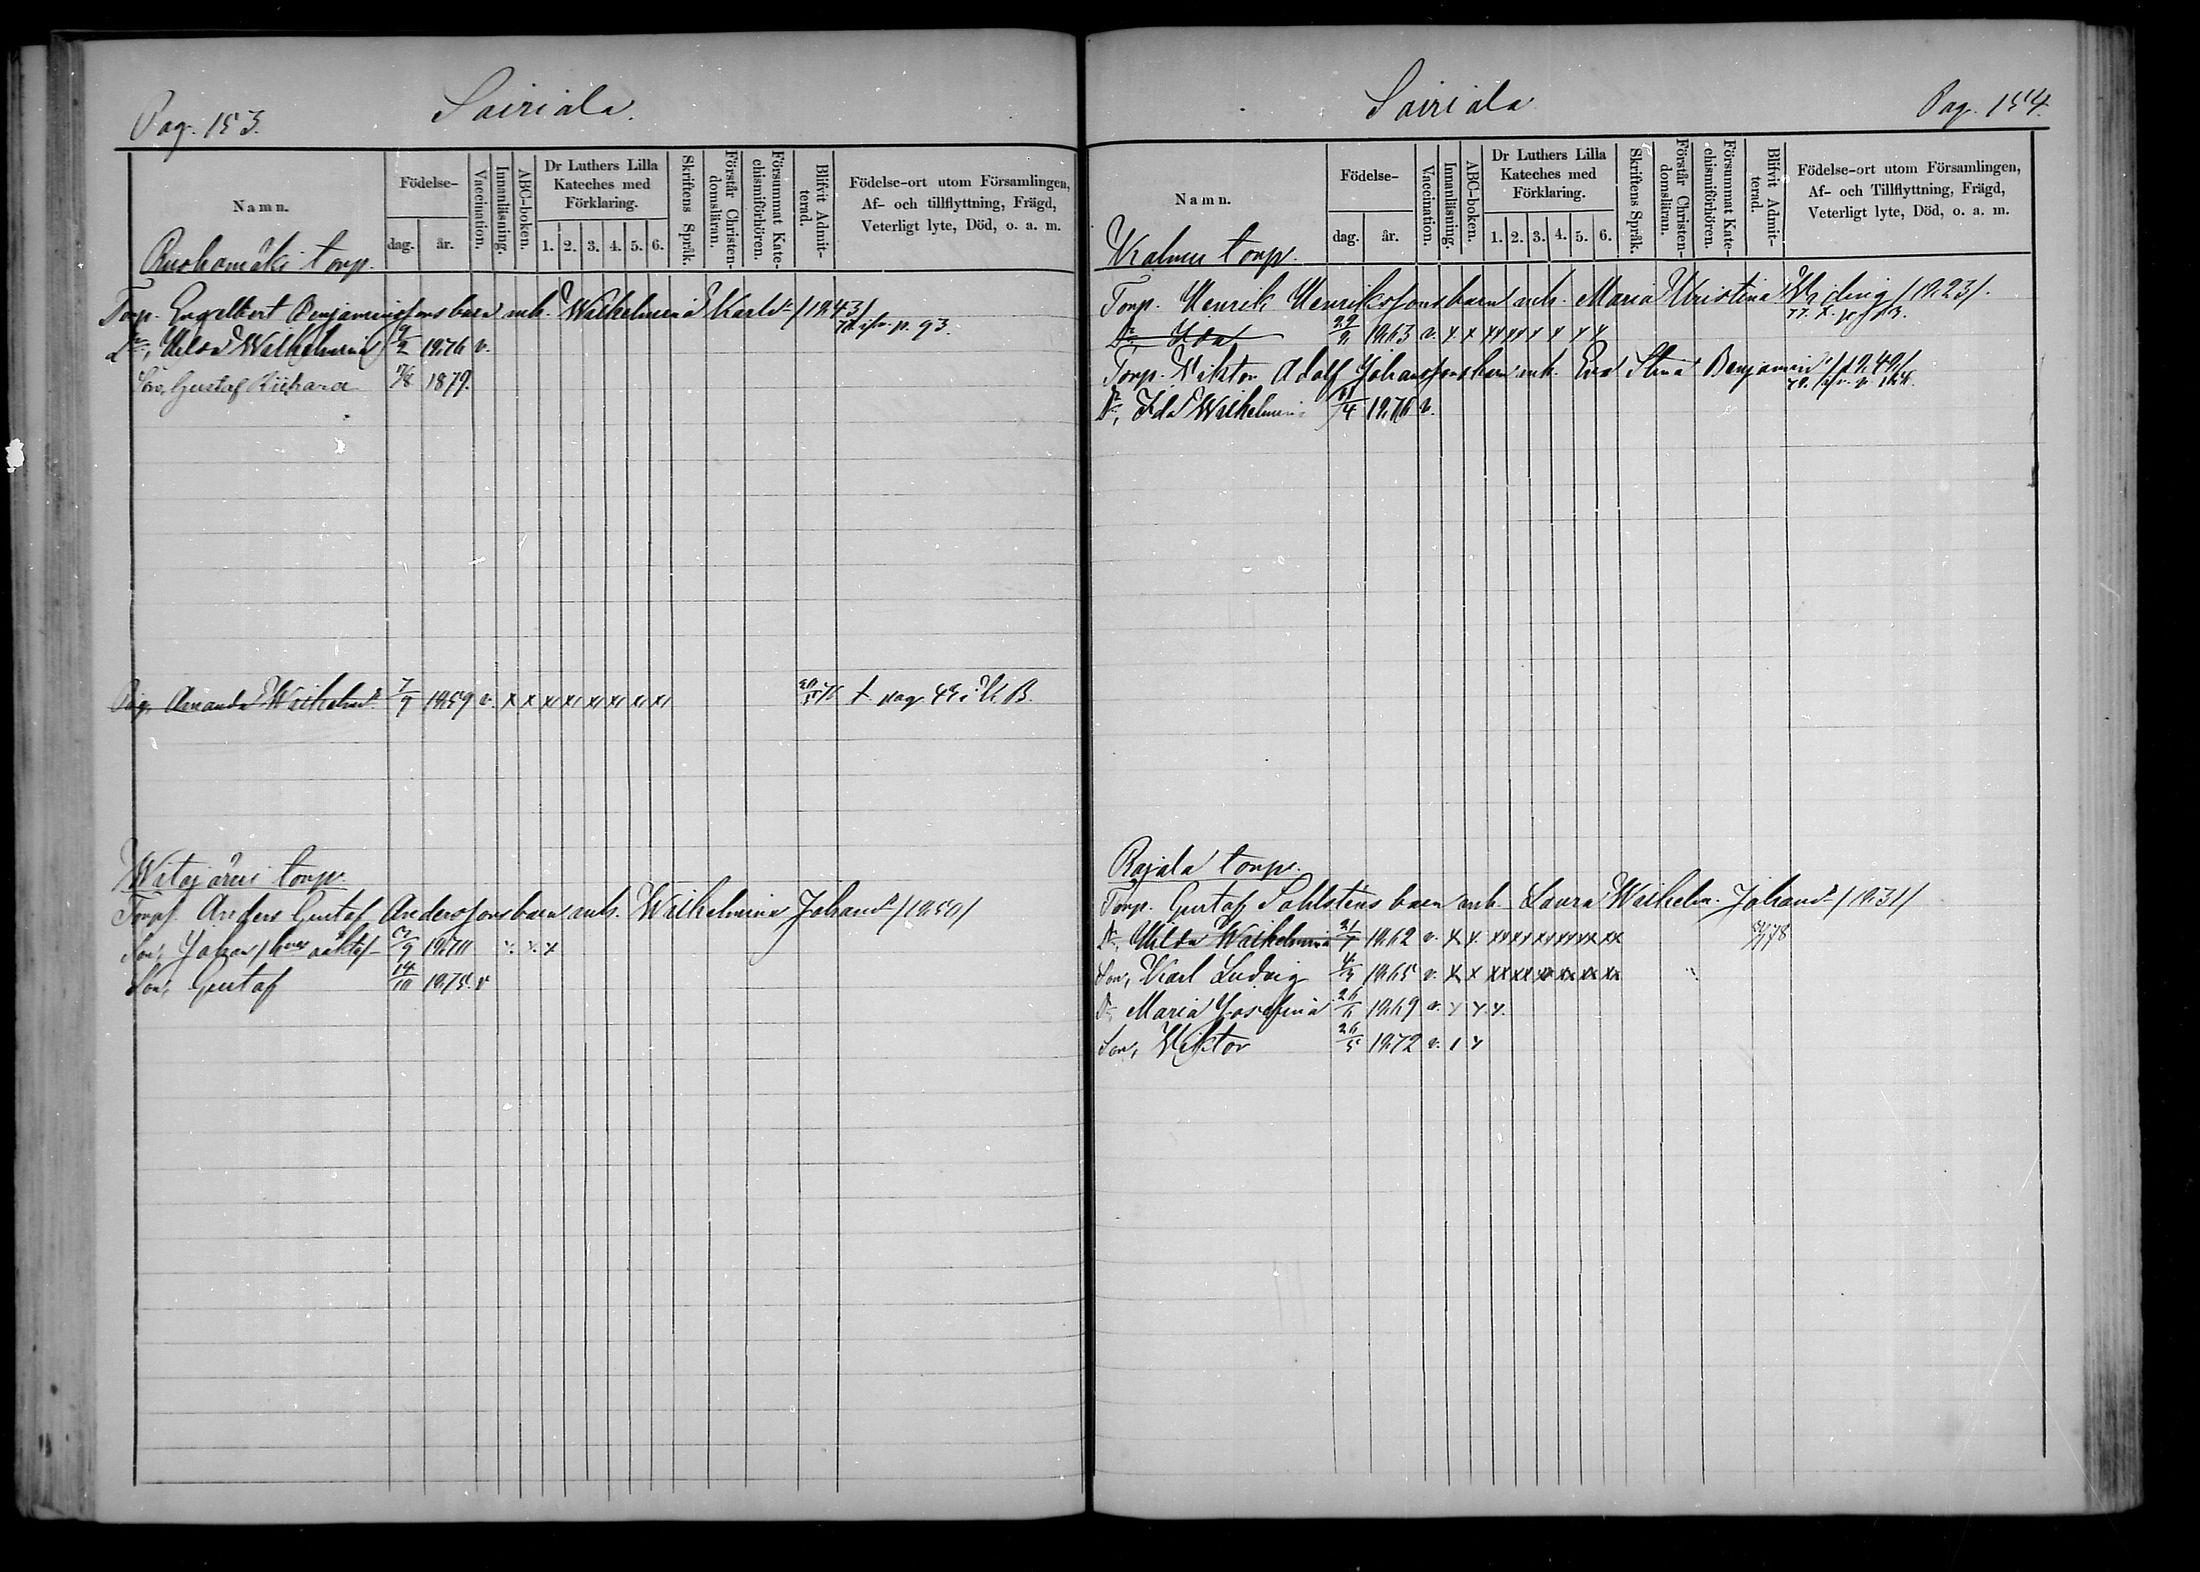 Pag. 153.
Sairiala.
Namn.
Födelse-
dag.
år.
Vaccination.
Innanläsning.
ABC-boken.
Dr Luthers Lilla
Kateches med
Förklaring.
1. 2. 3. 4. 5. 6.
Skriftens Språk.
Förstår Christen-
domsläran.
Försummat Kate-
chismiförhören.
Blifvit Admit-
terad.
Födelse-ort utom Församlingen,
Af- och tillflyttning, Frägd,
Veterligt lyte, Död, o. a. m.
torp.
Torp. Engelbert Benjaminssons barn mh. Wilhelmina Karlsd. /1843/
p. 93.
Dr, Hilda Wilhelmina 9/2 1876 v.
Son, Gustaf Rikhard 17/8 1879.
Pig. Amanda Wilhelmd. 7/9 1859 v. x x x x x x x x
pag. 43 i K. B.
torp.
Torp. Anders Gustaf Anderssons barn mh. Wilhelmina Johansd /1850/
Son, Johan 1870 x x x
Son, Gustaf 14/10 1875 v
Sairiala
Pag. 154.
Namn.
Födelse-
dag.
år.
Vaccination.
Innanläsning.
ABC-boken.
Dr Luthers Lilla
Kateches med
Förklaring.
1. 2. 3. 4. 5. 6.
Skriftens Språk.
Förstår Christen-
domsläran.
Försummat Kate-
chismiförhören.
Blifvit Admit-
terad.
Födelse-ort utom Församlingen,
Af- och Tillflyttning, Frägd,
Veterligt lyte, Död, o. a. m.
torp.
Torp. Henrik Henrikssons barn mh. Maria Kristina /1823/.
Dr, Ida 1863 v. x x xx xx x x x x
Torp. Viktor Adolf Johanssons barn mh. Eva Stina Benjamind. /1849/
Dr, Ida Wilhelmina 1876 v.
Rajala torp.
Torp. Gustaf Sahlsténs barn mh. Laura Wilhelm. Johansd /1831/
Dr, Hilda Wilhelmina 1862 v. x x xx xx xx xx xx xx
78
Son, Karl Ludvig 1865 v. x x xx xx xx xx xx xx
Dr, Maria Josefina 1869 v. x x x
Son, Viktor 26/5 1872 v. 1 x